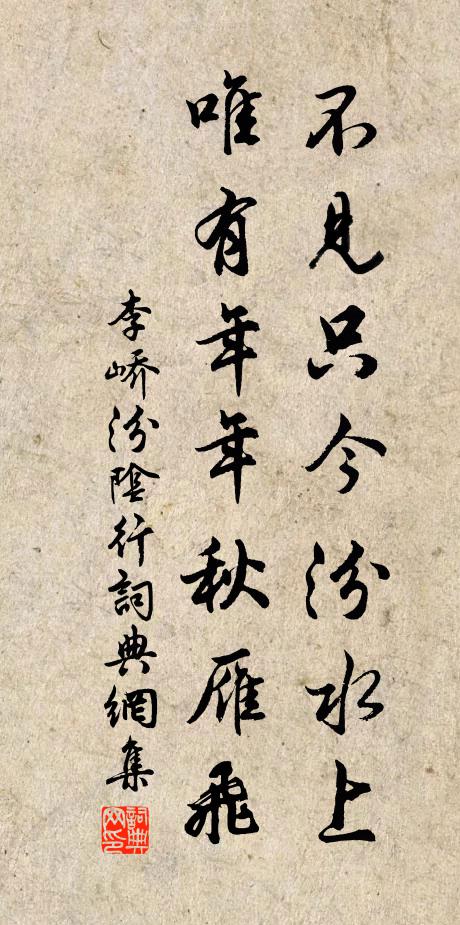 不見只今汾水上
唯有年年秋雁飛
李嶠汾陰行詞典網集
詞典网印